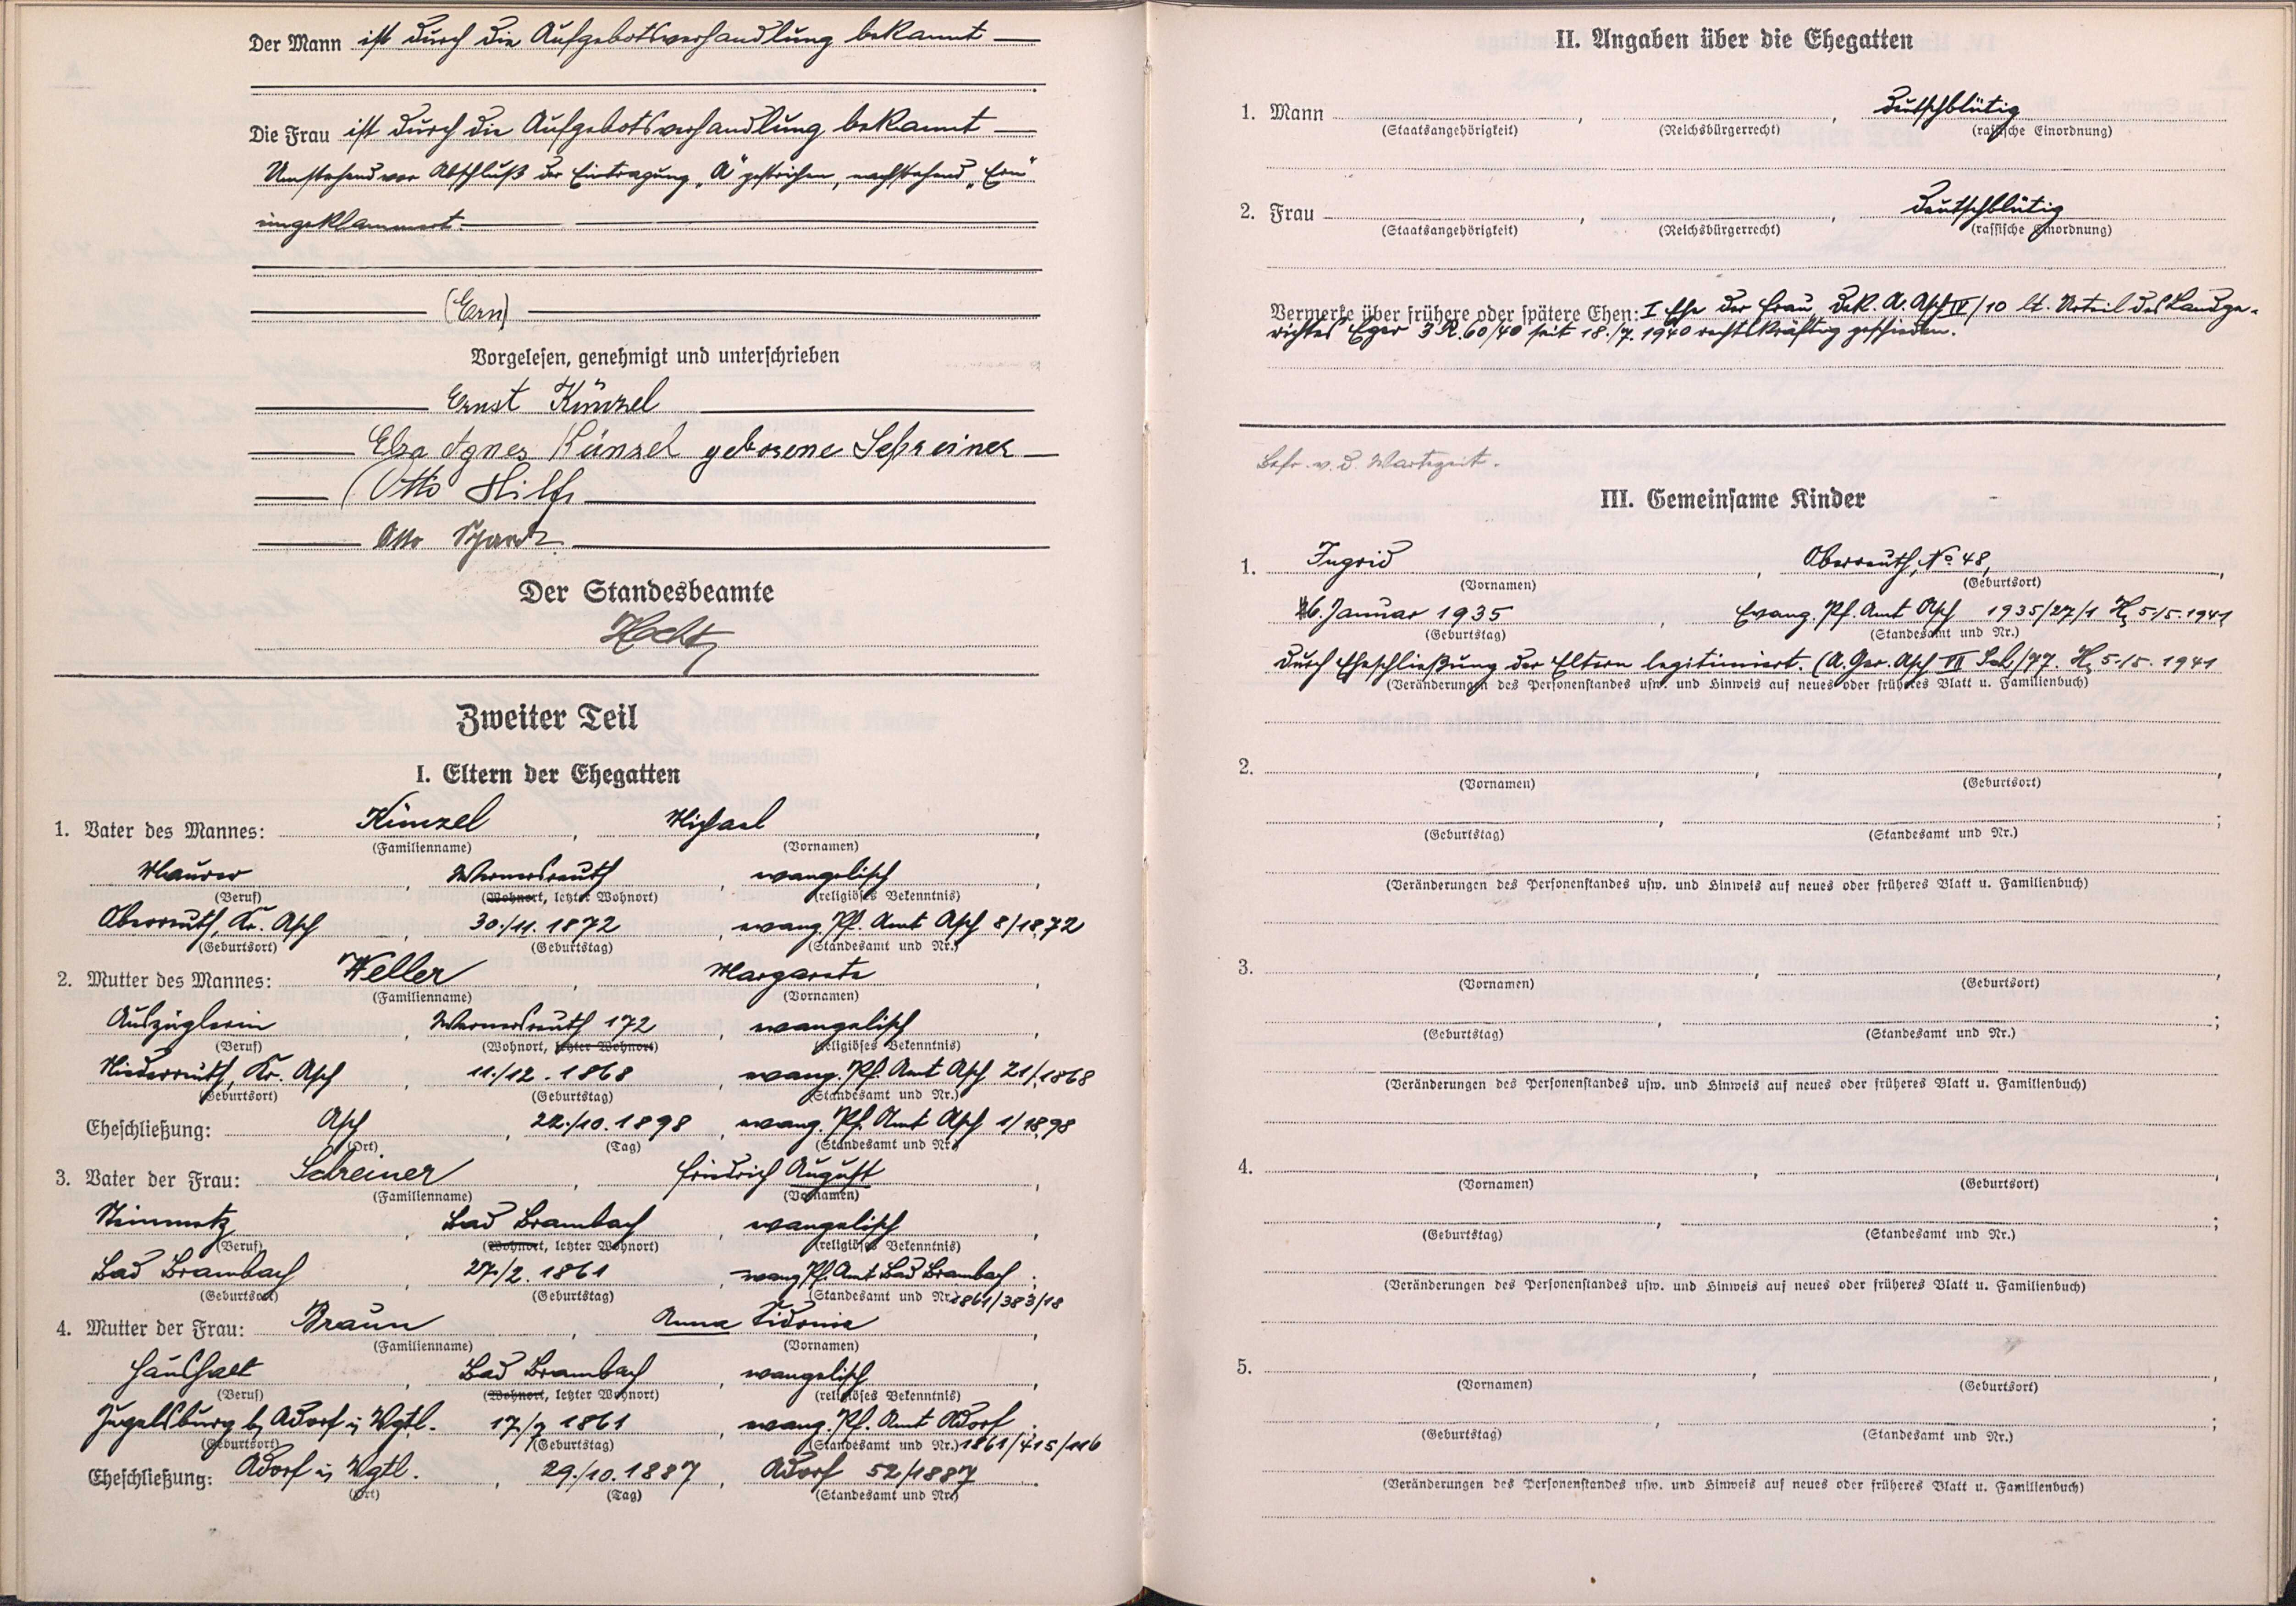 Der Mann ist durch die Aufgebotsverhandlung bekannt
Die Frau ist durch die Aufgebotsverhandlung bekannt
Umstehend vor Abschluß der Eintragung „A" gestrichen, nachstehend „Ern"
eingeklammert
(Ern)
Vorgelesen, genehmigt und unterschrieben
Ernst Künzel
Elsa Agnes Künzel geborene Schreiner
Otto Hilf
Otto
Der Standesbeamte
Zweiter Teil
I. Eltern der Ehegatten
1. Vater des Mannes: Künzel, Michael,
(Familienname) (Vornamen)
Maurer, Wernersreuth, evangelisch,
(Beruf) (Wohnort, letzter Wohnort) (religiöses Bekenntnis)
Oberreuth, Kr. Asch, 30./11. 1872, evang. Pf. Amt Asch 8/1872
(Geburtsort) (Geburtstag) (Standesamt und Nr.)
2. Mutter des Mannes: Weller, Margarete,
(Familienname) (Vornamen)
Auszüglerin, Wernersreuth 172, evangelisch,
(Beruf) (Wohnort, letzter Wohnort) (religiöses Bekenntnis)
Niederreuth, Kr. Asch, 11./12. 1868, evang. Pf. Amt Asch 21/1868
(Geburtsort) (Geburtstag) (Standesamt und Nr.)
Eheschließung: Asch, 22./10. 1898, evang. Pf. Amt Asch 1/1898
(Ort) (Tag) (Standesamt und Nr.)
3. Vater der Frau: Schreiner, Friedrich August,
(Familienname) (Vornamen)
Steinmetz, Bad Brambach, evangelisch,
(Beruf) (Wohnort, letzter Wohnort) (religiöses Bekenntnis)
Bad Brambach, 27./2. 1861, evang. Pf. Amt Bad Brambach;
(Geburtsort) (Geburtstag) (Standesamt und Nr.) 1861/383/18
4. Mutter der Frau: Braun, Anna Sidonie,
(Familienname) (Vornamen)
Haushalt, Bad Brambach, evangelisch,
(Beruf) (Wohnort, letzter Wohnort) (religiöses Bekenntnis)
Jugelsburg b/ Adorf i/ Vgtl. 17./7 1861, evang. Pf. Amt Adorf;
(Geburtsort) (Geburtstag) (Standesamt und Nr.) 1861/415/116
Eheschließung: Adorf i/ Vgtl., 29./10. 1887, Adorf 52/1887.
(Ort) (Tag) (Standesamt und Nr.)
II. Angaben über die Ehegatten
1. Mann , , deutschblütig
(Staatsangehörigkeit) (Reichsbürgerrecht) (rassische Einordnung)
2. Frau , , deutschblütig
(Staatsangehörigkeit) (Reichsbürgerrecht) (rassische Einordnung)
Vermerke über frühere oder spätere Ehen: I Ehe der Frau, Dek. A. Asch IV/10 lt. Urteil des Landge-
richtes Eger 3 R. 60/40 seit 18./7. 1940 rechtskräftig geschieden.
Befr. v. d. Wartezeit.
III. Gemeinsame Kinder
1. Ingrid, Oberreuth, No 48,
(Vornamen) (Geburtsort)
16. Januar 1935, Evang. Pf. Amt Asch 1935/27/1 5./5. 1941
(Geburtstag) (Standesamt und Nr.)
durch Eheschließung der Eltern legitimiert. (A. Ger. Asch 5./5. 1941
(Veränderungen des Personenstandes usw. und Hinweis auf neues oder früheres Blatt u. Familienbuch)
2. , ,
(Vornamen) (Geburtsort)
, ;
(Geburtstag) (Standesamt und Nr.)
(Veränderungen des Personenstandes usw. und Hinweis auf neues oder früheres Blatt u. Familienbuch)
3. , ,
(Vornamen) (Geburtsort)
, ;
(Geburtstag) (Standesamt und Nr.)
(Veränderungen des Personenstandes usw. und Hinweis auf neues oder früheres Blatt u. Familienbuch)
4. , ,
(Vornamen) (Geburtsort)
, ;
(Geburtstag) (Standesamt und Nr.)
(Veränderungen des Personenstandes usw. und Hinweis auf neues oder früheres Blatt u. Familienbuch)
5. , ,
(Vornamen) (Geburtsort)
, ;
(Geburtstag) (Standesamt und Nr.)
(Veränderungen des Personenstandes usw. und Hinweis auf neues oder früheres Blatt u. Familienbuch)